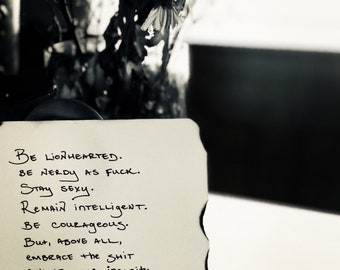 Be lionhearted.
be nerdy as fuck.
Stay sexy.
Remain intelligent.
Be courageous.
But, above all,
embrace the shit